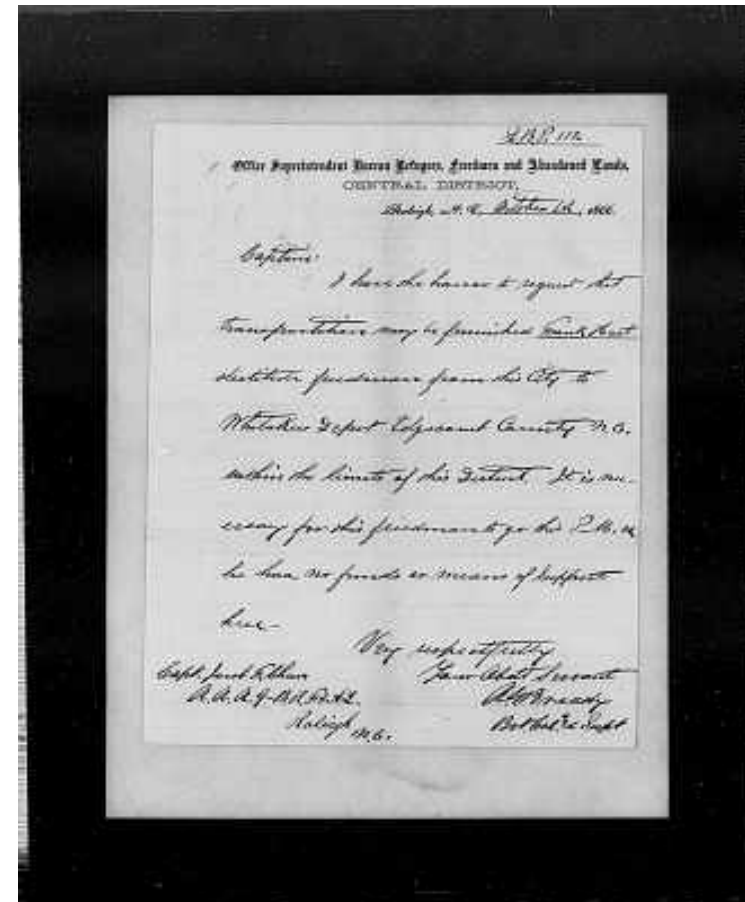 Office Superintendent Bureau Refugees, Freedmen and Abandoned Lands,
CENTRAL DISTRICT,
Raleigh, N. C., October 6th, 1866
Captain:
I have the honor to request that
transportation may be furnished Frank
destitute freedman from this City to
Whitakers Depot Edgecomb County N.C.
within the limits of this District. It is nec-
essary for this freedman to go this P.M. as
he has no funds or means of support
here—
Very respectfully
Your Obdt Servant
Capt. Jacob F. Chur
A.A.A.G. B.R.F.&A.L.
Raleigh N.C.
Bvt Col & Supt